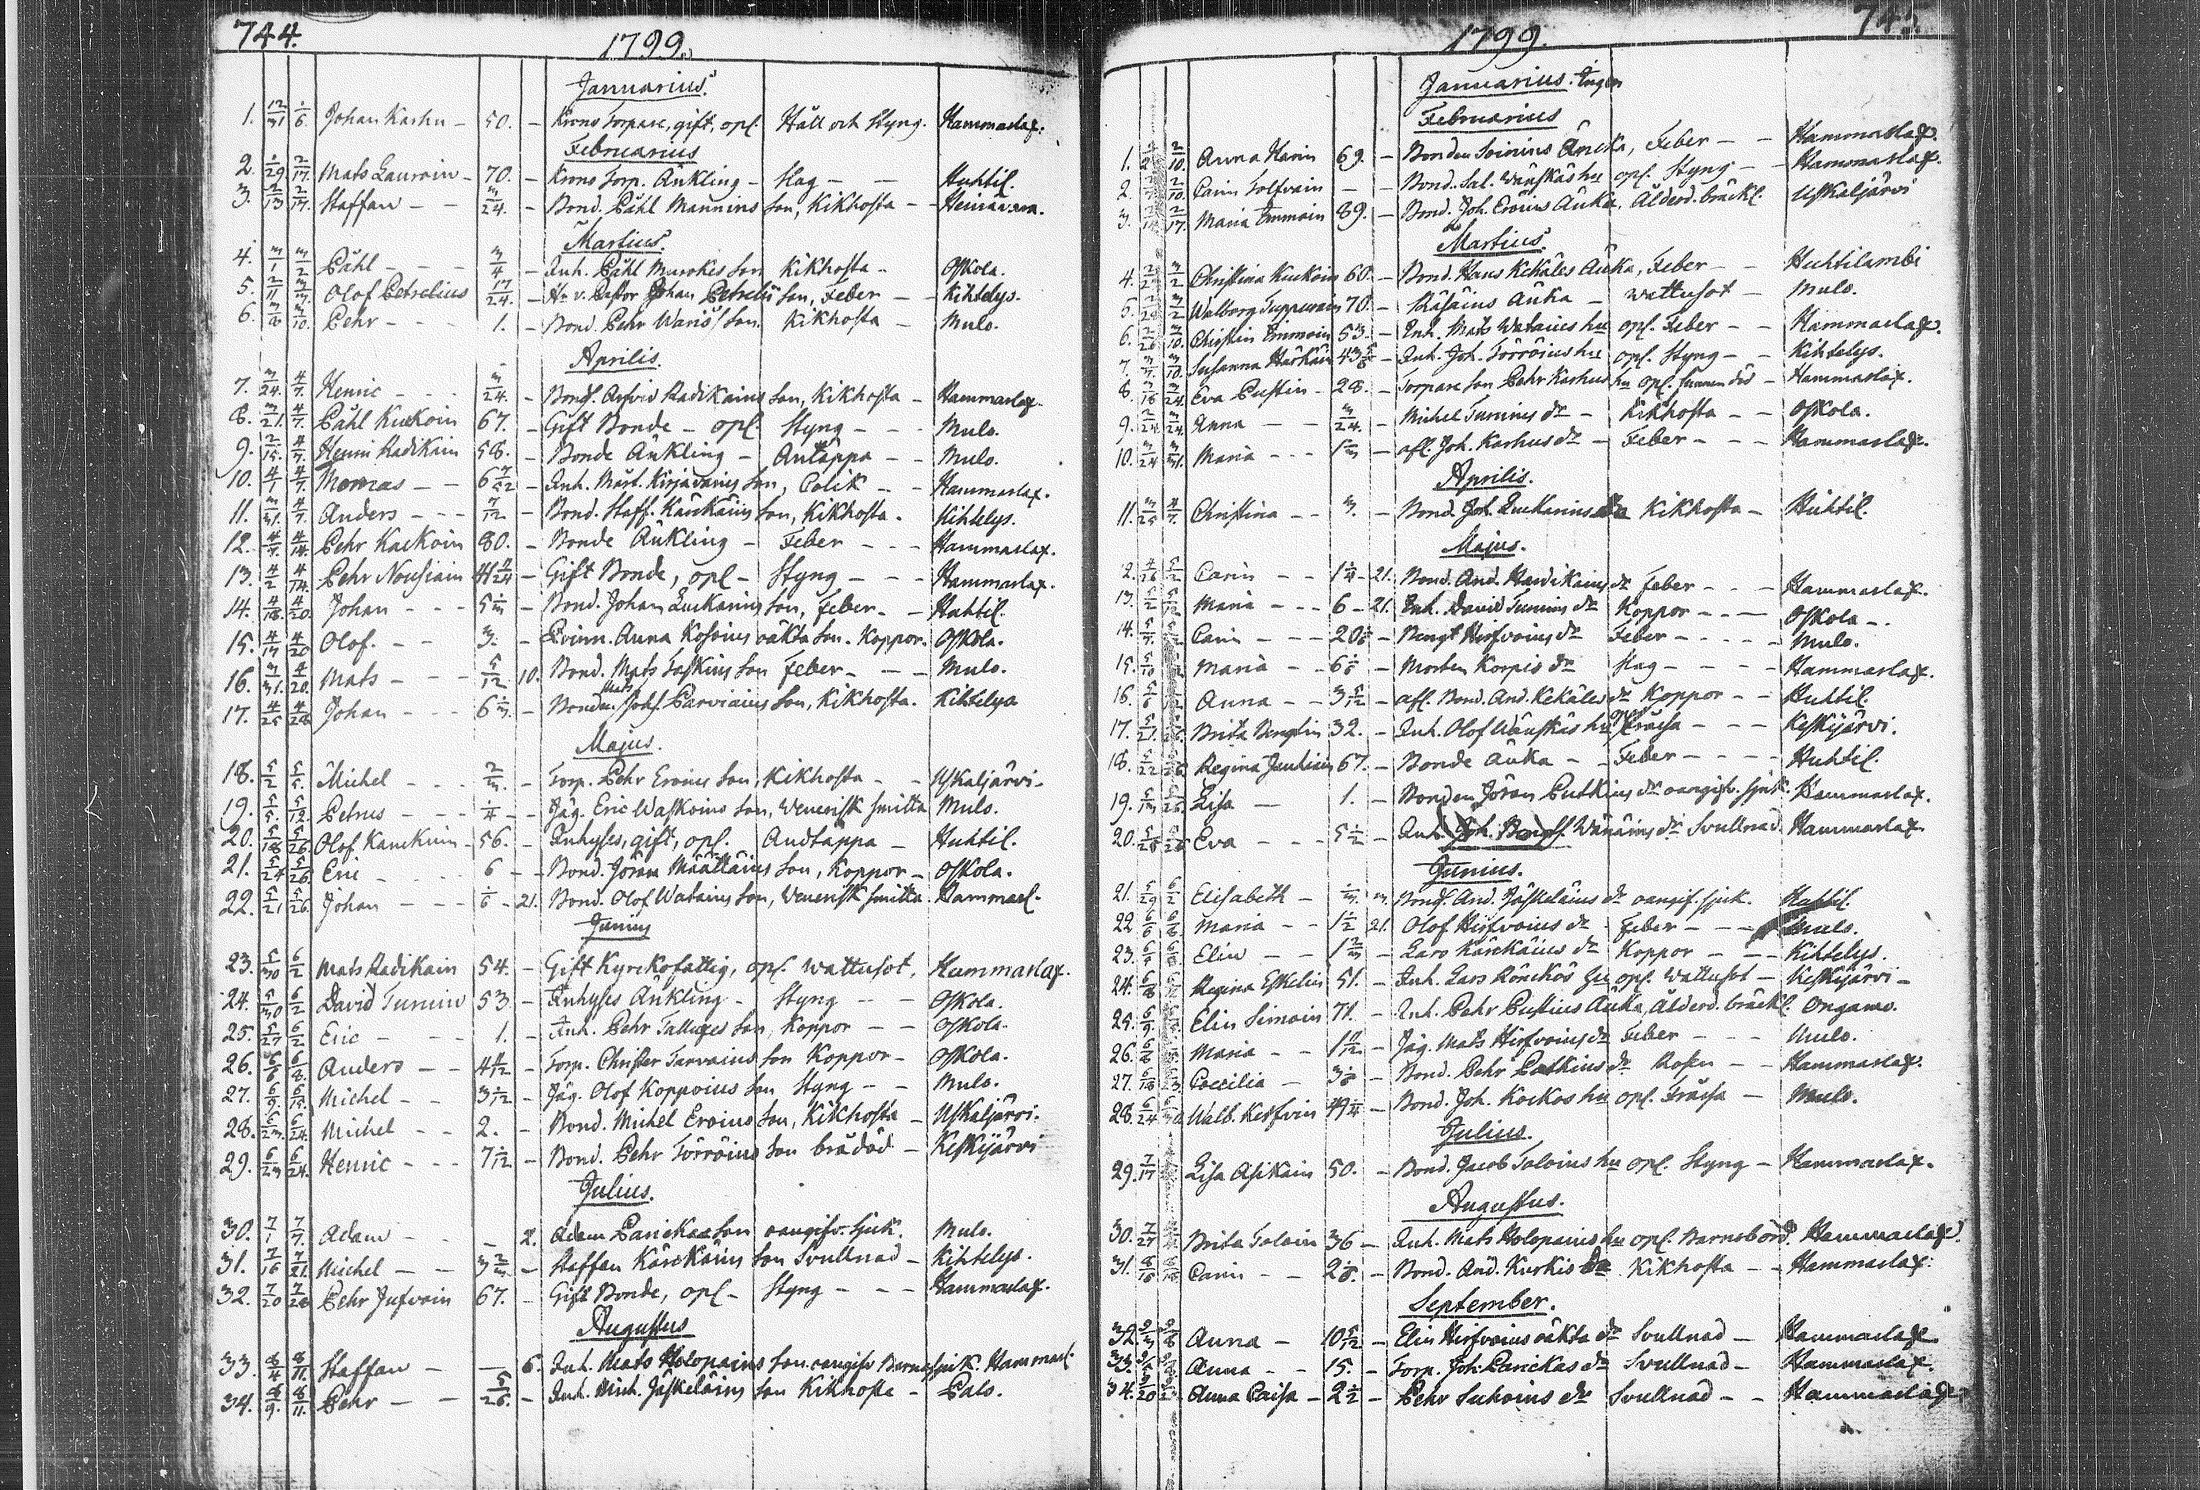 744.
1799.
Januarius.
1. 12/31 1/6. Johan Karhu - 50. - Krono Torpare, gift, opl. Håll och Styng. Hammaslax.
Februarius
2. 1/29 2/17. Mats Laurain - 70. - Krono Torp. Änkling - Slag - - Huhtil.
3. 2/13 2/17. Staffan - - 3/24. - Bond. Påhl Mannins Son, Kikhosta - -
Martius.
4. 3/1 3/2 Påhl - - - 3/4 - Inh. Påhl Murokes Son Kikhosta - Oskola.
5. 2/11 3/3. Olof Petrelius 17/24. - Hr v. Pastor Johan Petrelii Son, Feber - - Kihtelys.
6. 3/10. Pehr - - - 1. - Bond. Pehr Waris' Son Kikhosta - Mulo.
Aprilis.
7. 3/24. 4/7. Henric - - - 3/24. - Bond. Arfvid Radikains Son, Kikhosta - Hammaslax.
8. 3/21. 4/7. Påhl Kuckoin 67. - Gift Bonde - opl. Styng - - - Mulo.
9. 2/15. 4/7. Henric Radikain 58. - Bonde Änkling - Andtäppa - - Mulo.
10. 4/1 4/7. Thomas - - 6 7/52 - Inh. Mårt. Kirjavains Son, Colik - - Hammaslax.
11. 3/31. 4/7. Anders - - - 7/12 - Bond. Staff. Kärckäins Son, Kikhosta. Kihtelys.
12. 4/7. 4/14. Pehr Kackoin 80. - Bonde Änkling - Feber - - - Hammaslax.
13. 4/2 4/14. Pehr Nousiain 41 7/24 - Gift Bonde, opl - Styng - - - Hammaslax.
14. 4/18. 4/20. Johan - - - 5 1/3 - Bond. Johan Luckarins Son, Feber - - Huhtil.
15. 4/17 4/20 Olof. - - 3. - Qvinn. Anna Kosoins oäkta Son. Koppor. Oskola.
16. 3/31. 4/20. Mats - - - 5/12. 10. Bond. Mats Taskins Son Feber - - - Mulo.
17. 4/25 4/28 Johan - - - 6 1/3. - Bonden Mats Johs. Parviains Son, Kikhosta. Kihtelys
Majus.
18. 5/2 5/5. Michel - - - 2/3. - Torp. Pehr Eroins Son, Kikhosta - - Uskaljärvi -
19. 5/5. 5/12. Petrus - - - 1/4 - - Jäg. Eric Waskoins Son, Venerisk smitta Mulo.
20. 5/18 5/26. Olof Kanckuin - 56. - Inhyses, gift, opl. Andtäppa - Huhtil.
21. 5/24 5/26. Eric - - - - 6 - - Bond. Jöran Määttäins Son, Koppor - Oskola.
22. 5/21 5/26. Johan - - - 1/6 - 21. Bond. Olof Watains Son, Venerisk smitta Hammasl.
Junius
23. 5/30 6/2 Mats Radikain 54. - Gift Kyrckofattig, opl. Wattusot, Hammaslax.
24. 5/30 6/2 David Turuin 53 - Inhyses Änkling - Styng - - Oskola.
25. 5/27 6/2 Eric - - - 1. - Inh. Pehr Son, Koppor - - Oskola.
26. 6/6 6/8. Anders - - 4 4/12 - Torp. Christer Tarvains Son Koppor - Oskola.
27. 6/9 6/15. Michel - - 3 1/12 - Jäg. Olof Koppoins Son Styng - - Mulo.
28. 6/23. 6/24. Michel - - 2. - Bond. Michel Eroins Son, Kikhosta - Uskaljärvi.
29. 6/23 6/24. Henric - - - 7 1/12 - Bond. Pehr Törröins Son bråddöd - Keskijärvi
Julius.
30. 7/1 7/7. Adam - - - 2. Adam Parickas Son oangifv. sjuk. Mulo.
31. 7/16 7/21. Michel - - 3 2/3. - Staffan Kärckäins Son Svullnad - Kihtelys.
32. 7/20 7/28 Pehr Jufvain 67. - Gift Bonde, opl - Styng - - - Hammaslax.
Augustus
33. 8/4 8/11. Staffan - - 6. Inh. Mats Holopains Son. oangifv Barnasjuk. Hammasl.
34. 8/9. 8/11. Pehr - - 5/26. - Inh. Mich. Jäskeläins Son Kikhosta - Palo.
745.
1799.
Januarius. Ingen
Februarius
1. 2/10. Anna Harin 69. - Bonden Soinins Äncka, Feber - - Hammaslax.
2. 2/10. Carin Tolfvain - - Bond. Sal. Wänskäs hu opl. Styng - - Hammaslax.
3. 2/17. Maria Immoin 89. - Bond. Joh. Eroins Änka, Ålderd. bräckl. Uskaljärvi
Martius.
4. 3/2 Christina Kuckoin 60. - Bond. Hans Kekäles Änka, Feber - - Huhtilambi
5. 3/2 Walborg Tuppurain 70. - Räsäins Änka - Wattusot - Mulo.
6. 3/10. Christin Immoin 53. - Inh. Mats Watains hu opl. Feber - - Hammaslax.
7. 3/7. 3/10. Susanna Härkäin 43 5/6 - Inh. Joh. Törröins hu opl. Styng - - Kihtelys.
8. 3/16 3/24. Eva Pustin - 28. - Torpare Son Pehr Karhus hu opl. - Hammaslax.
9. 2/24 3/24. Anna - - 3/24. - Michel Turuins dr - Kikhosta - - Oskola.
10. 3/24 3/31. Maria - - - 1 2/3 - afl. Joh. Karhus dr - Feber - - - Hammaslax.
Aprilis.
11. 3/25 4/7. Christina - - 3. - Bond. Joh. Luckarins dr Kikhosta - Huhtil.
Majus.
12. 4/26 5/2 Carin - - 1 1/4 - 21. Bond. And. Hardikains dr Feber - - - Hammaslax.
13. 5/2 5/12 Maria - - - 6 - 21. Inh. David Turuins dr Koppor - - - Oskola - .
14. 5/7. Carin - - - 20 1/6 - Bengt Hirfvoins dr Feber - - - - Mulo.
15. 5/10 Maria - - 6 1/6 - Morten Korpis dr Slag - - - - Hammaslax.
16. 5/6 Anna - - 3 5/12 - afl. Bond. And. Kekäles dr Koppor - - Huhtil.
17. 5/21. Brita Venglin 32. - Inh. Olof Wänskäs hu opl. Fråssa - - - Keskijärvi.
18. 5/22 Regina Jauhiain 67. - Bonde Änka - - Feber - - - - Huhtil.
19. 5/13 5/26. Lisa - 1. - Bonden Jöran Putkins dr oangifv. sjuk. Hammaslax.
20. 5/25 5/26 Eva - - - 5 1/2 - Inh. Joh. Bengts. Wänäins dr Svullnad Hammaslax
Junius.
21. 5/29 6/2 Elisabeth - 1/3. 3. Bond. And. Jäskeläins dr oangif. sjuk. Huhtil.
22 6/6 6/8 Maria - - 1 1/2 21. Olof Hirfvoins dr - Feber - - - Mulo.
23. 6/5 6/8. Elin - - 1 2/3 - Lars Kärckäins dr Koppor - - - Kihtelys.
24. 6/8 Regina Eskelin 51. - Inh. Lars Rönckös hu opl. Wattusot - Keskijärvi -
25. 6/9 Elin Simoin 71. - Inh. Pehr Pustins Änka, Ålderd. bräckl. Ongamo.
26. 6/8 Maria - - 1 7/12 - Jäg. Mats Hirfvoins dr Feber - - - Mulo.
27. 6/18 6/23. Coecilia - 3 1/6 - Bond. Pehr Putkins dr Rosen - - Hammaslax.
28. 6/24 6/30 Walb. Kesfvin 49 1/4 - Bond. Joh. Kockos hu opl. Fråssa - Mulo.
Julius.
29. 7/17 Lisa Asikain 50. - Bond. Jacob Toloins hu opl. Styng - Hammaslax.
Augustus.
30. 7/27 Brita Toloin 36 - Inh. Mats Holopains hu opl. Barnsbörd. Hammaslax.
31. 8/16 8/18 Carin - - 2 1/6. - Bond. And. Kurkis dr Kikhosta - - Hammaslax.
September.
32. 9/3 9/8 Anna - 10 5/12 - Elin Hirfvoins oäkta dr Svullnad - Hammaslax
33. Anna - 15. - Torp. Joh. Parickas dr Svullnad - Hammaslax.
34. 9/20 Anna Caisa - 2 1/2 - Pehr Suhoins dr Svullnad - - Hammaslax.